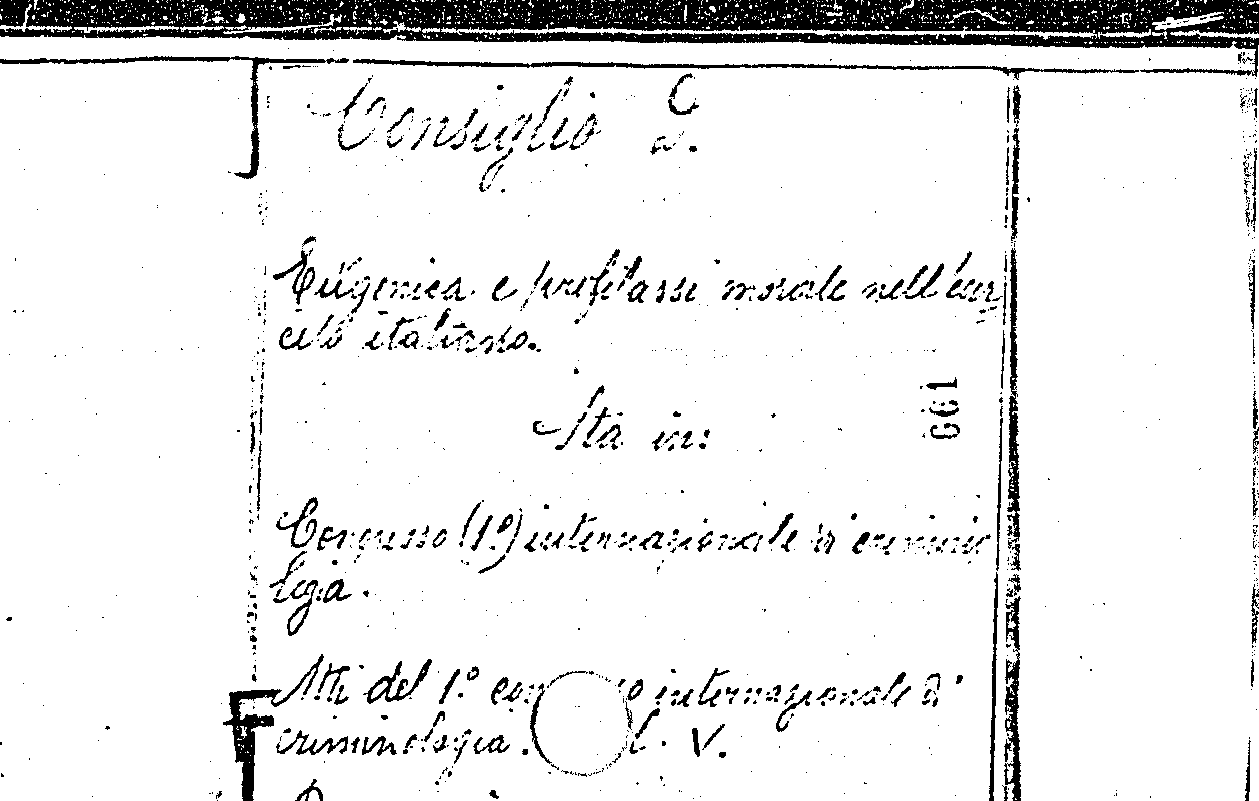 Consiglio C.
Eugenica e profilassi morale nell'eser
cito italiano.
Sta in:
661
Congresso (1º) internazionale di crimino
logia.
Atti del 1º con so internazionale di
criminologia. l. V.